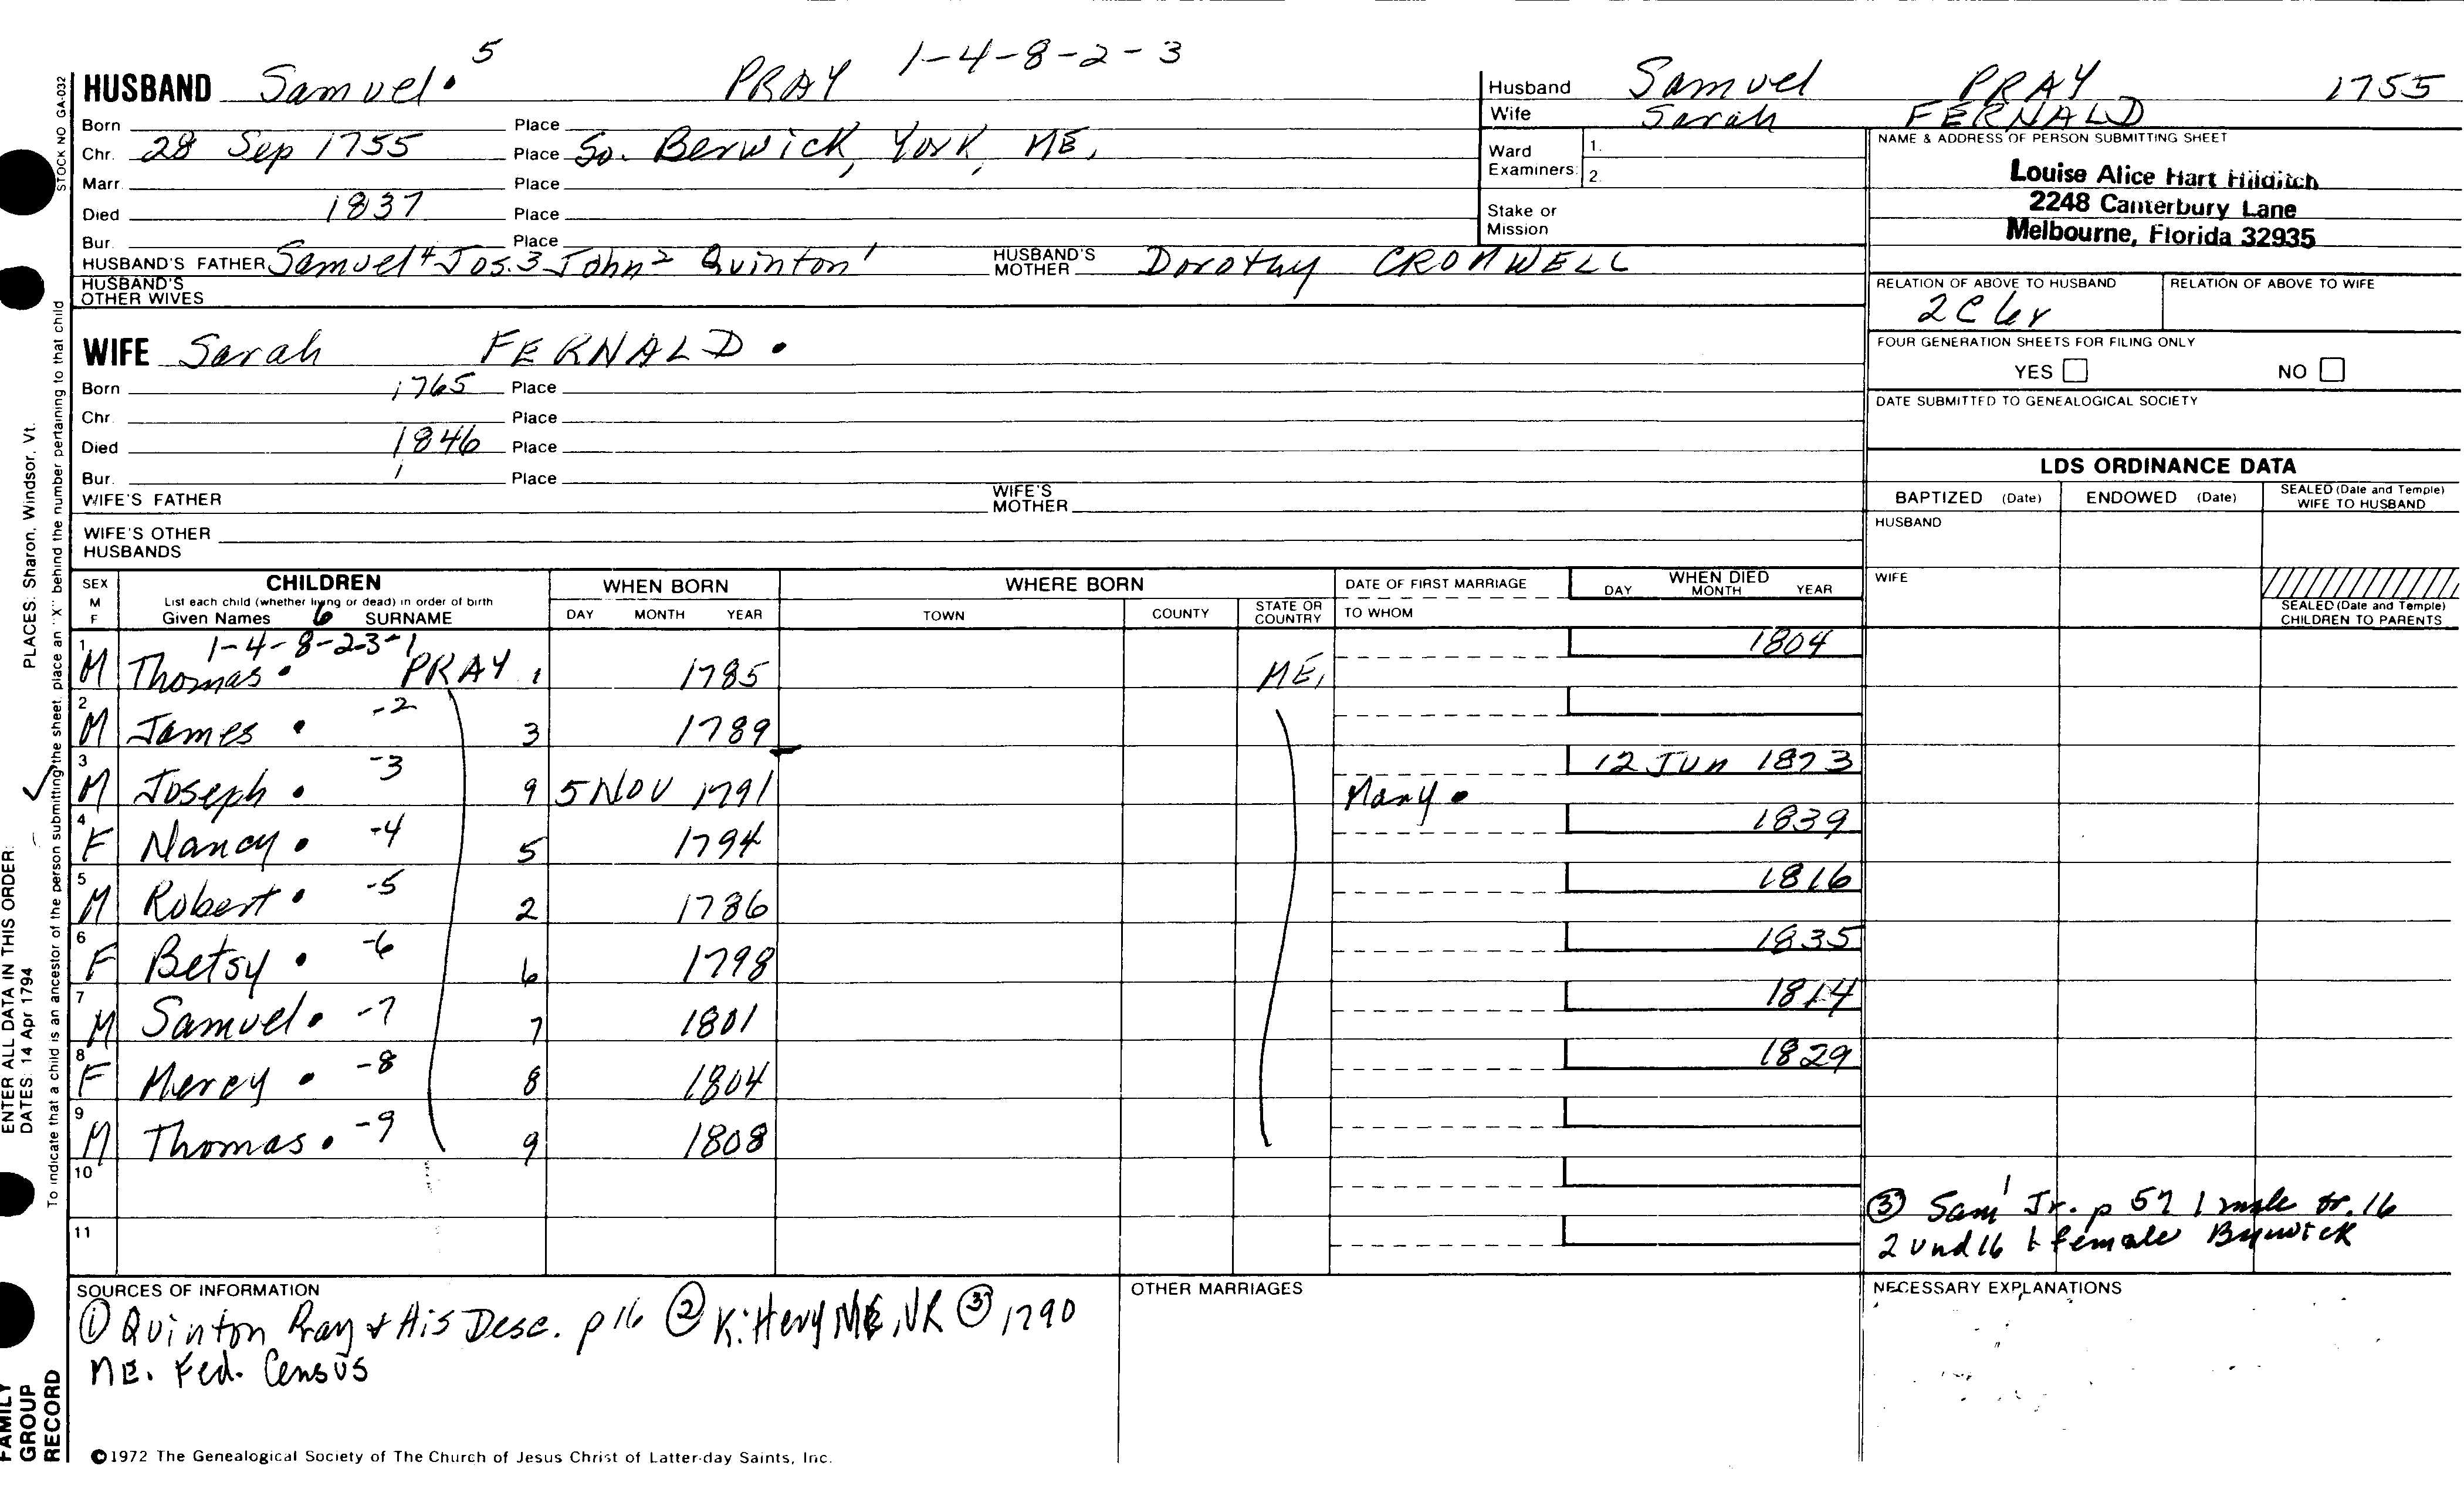 5
1-4-8-2-3
HUSBAND Samuel. PRAY
Born Place
Chr. 28 Sep 1755 Place So. Berwick, York, ME,
Marr. Place
Died 1837 Place
Bur. Place
HUSBAND'S FATHER Samuel 4 Jos. 3 John 2 Quinton 1 HUSBAND'S MOTHER Dorothy CROMWELL
HUSBAND'S OTHER WIVES
WIFE Sarah FERNALD.
Born 1765 Place
Chr. Place
Died 1846 Place
Bur. Place
WIFE'S FATHER WIFE'S MOTHER
WIFE'S OTHER HUSBANDS
Husband Samuel PRAY 1755
Wife Sarah FERNALD
Ward Examiners: 1.
2.
Stake or Mission
NAME & ADDRESS OF PERSON SUBMITTING SHEET
Louise Alice Hart Hilditch
2248 Canterbury Lane
Melbourne, Florida 32935
RELATION OF ABOVE TO HUSBAND RELATION OF ABOVE TO WIFE
2C 6r
FOUR GENERATION SHEETS FOR FILING ONLY
YES NO
DATE SUBMITTED TO GENEALOGICAL SOCIETY
LDS ORDINANCE DATA
BAPTIZED (Date) ENDOWED (Date) SEALED (Date and Temple) WIFE TO HUSBAND
HUSBAND
WIFE
SEALED (Date and Temple) CHILDREN TO PARENTS
SEX M F
CHILDREN
List each child (whether living or dead) in order of birth
Given Names 6 SURNAME
WHEN BORN
DAY MONTH YEAR
WHERE BORN
TOWN COUNTY STATE OR COUNTRY
DATE OF FIRST MARRIAGE
TO WHOM
WHEN DIED
DAY MONTH YEAR
1-4-8-2-3-1
1 M Thomas. PRAY 1 1785 ME, 1804
2 M James. -2 3 1789
3 M Joseph. -3 9 5 NOV 1791 Mary. 12 Jun 1873
4 F Nancy. -4 5 1794 1839
5 M Robert. -5 2 1786 1816
6 F Betsy. -6 6 1798 1835
7 M Samuel. -7 7 1801 1814
8 F Mercy. -8 8 1804 1829
9 M Thomas. -9 9 1808
10
11
③ Sam'l Jr. p 57 1 male ov. 16
2 und 16 1 female
SOURCES OF INFORMATION
① Quinton Pray & His Desc. p 16 ② Kittery ME, VR ③ 1790
ME. Fed. Census
OTHER MARRIAGES
NECESSARY EXPLANATIONS
©1972 The Genealogical Society of The Church of Jesus Christ of Latter-day Saints, Inc.
STOCK NO GA-032
To indicate that a child is an ancestor of the person submitting the sheet, place an "X" behind the number pertaining to that child
PLACES: Sharon, Windsor, Vt.
ENTER ALL DATA IN THIS ORDER:
DATES: 14 Apr 1794
FAMILY
GROUP
RECORD